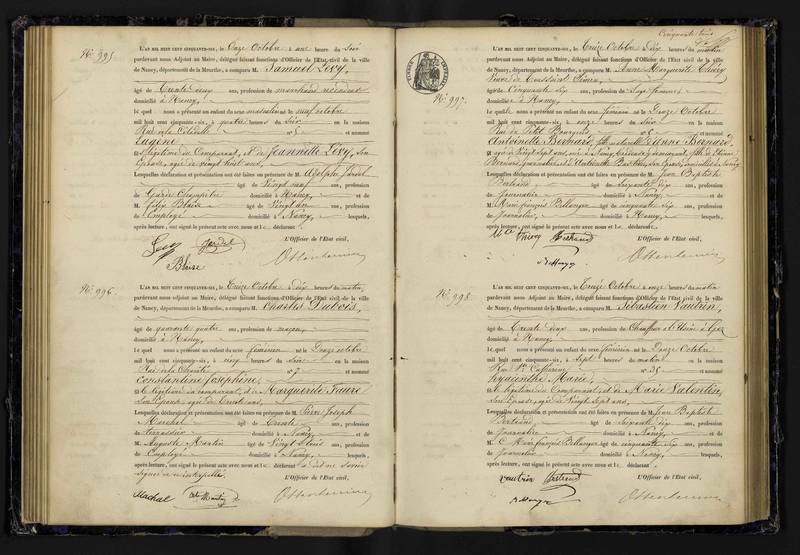 N° 995.
L'AN MIL HUIT CENT CINQUANTE-SIX, le Onze Octobre à une heure du Soir
pardevant nous Adjoint au Maire, délégué faisant fonctions d'Officier de l'État civil de la ville
de Nancy, département de la Meurthe, a comparu M. Samuel Lévy,
âgé de Trente ans, profession de marchand
domicilié à Nancy,
lequel nous a présenté un enfant du sexe masculin né le neuf octobre
mil huit cent cinquante-six, à quatre heures du Soir en la maison
Rue de la Citadelle n° 5 et nommé
Eugène,
fils légitime du Comparant, et de Jeannette Lévy, Son
Épouse, âgée de vingt huit ans,
Lesquelles déclaration et présentation ont été faites en présence de M. Adolphe Jardel
âgé de Vingt neuf ans, profession
de Garde Champêtre domicilié à Nancy, et de
M. Félix Blaise âgé de Vingt un ans, profession
de Employé domicilié à Nancy, lesquels,
après lecture, ont signé le présent acte avec nous et le déclarant.
L'Officier de l'État civil,
Levy Jardel
Blaise
N° 996.
L'AN MIL HUIT CENT CINQUANTE-SIX, le Treize Octobre à Dix heures du matin,
pardevant nous Adjoint au Maire, délégué faisant fonctions d'Officier de l'État civil de la ville
de Nancy, département de la Meurthe, a comparu M. Charles Dubois,
âgé de quarante quatre ans, profession de maçon,
domicilié à Nancy,
lequel nous a présenté un enfant du sexe féminin né le Douze octobre
mil huit cent cinquante-six, à cinq heures du Soir en la maison
Rue de la n° 7 et nommé
Constantine Joséphine,
fille légitime du comparant, et de Marguerite Faure
Son Épouse, âgée de Trente ans,
Lesquelles déclaration et présentation ont été faites en présence de M. Pierre Joseph
Machal âgé de Trente ans, profession
de terrassier domicilié à Nancy, et de
M. Auguste Martin âgé de Vingt ans, profession
de Employé domicilié à Nancy, lesquels,
après lecture, ont signé le présent acte avec nous et le déclarant a dit ne savoir
signer
L'Officier de l'État civil,
Machal Martin
Cinquante trois
N° 997.
L'AN MIL HUIT CENT CINQUANTE-SIX, le Treize Octobre à Dix heures du matin
pardevant nous Adjoint au Maire, délégué faisant fonctions d'Officier de l'État civil de la ville
de Nancy, département de la Meurthe, a comparu M. Anne Marguerite Thiéry
Veuve de Toussaint
âgé de Cinquante Six ans, profession de Sage femme,
domicilié à Nancy,
lequel nous a présenté un enfant du sexe féminin né le Douze Octobre
mil huit cent cinquante-six, à onze heures du Soir en la maison
Rue du Petit Bourgeois n° 6 et nommé
Antoinette Bernard, fille naturelle d'Anne Bernard,
âgée de Vingt Sept ans, née à Nancy, demeurant, fille de
Bernard, journalier, et d'Antoinette son Épouse, domiciliés à Nancy
Lesquelles déclaration et présentation ont été faites en présence de M. Jean Baptiste
Bertrand âgé de Soixante dix ans, profession
de Journalier domicilié à Nancy, et de
M. René François Bellanger âgé de cinquante Six ans, profession
de Journalier domicilié à Nancy, lesquels,
après lecture, ont signé le présent acte avec nous et la déclarante.
L'Officier de l'État civil,
Thiery Bertrand
Bellanger
N° 998.
L'AN MIL HUIT CENT CINQUANTE-SIX, le Treize Octobre à onze heures du matin
pardevant nous Adjoint au Maire, délégué faisant fonctions d'Officier de l'État civil de la ville
de Nancy, département de la Meurthe, a comparu M. Sébastien Vautrin,
âgé de Trente deux ans, profession de Chauffeur à l'Usine à Gaz
domicilié à Nancy,
lequel nous a présenté un enfant du sexe féminin né le Douze Octobre
mil huit cent cinquante-six, à Sept heures du matin en la maison
Rue Ste Catherine n° 35 et nommé
Hyacinthe Marie,
fille légitime du Comparant, et de Marie Valentin,
Son Épouse, âgée de Vingt Sept ans,
Lesquelles déclaration et présentation ont été faites en présence de M. Jean Baptiste
Bertrand âgé de Soixante dix ans, profession
de Journalier domicilié à Nancy, et de
M. René François Bellanger âgé de cinquante Six ans, profession
de Journalier domicilié à Nancy, lesquels,
après lecture, ont signé le présent acte avec nous et le déclarant.
L'Officier de l'État civil,
vautrin Bertrand
Bellanger